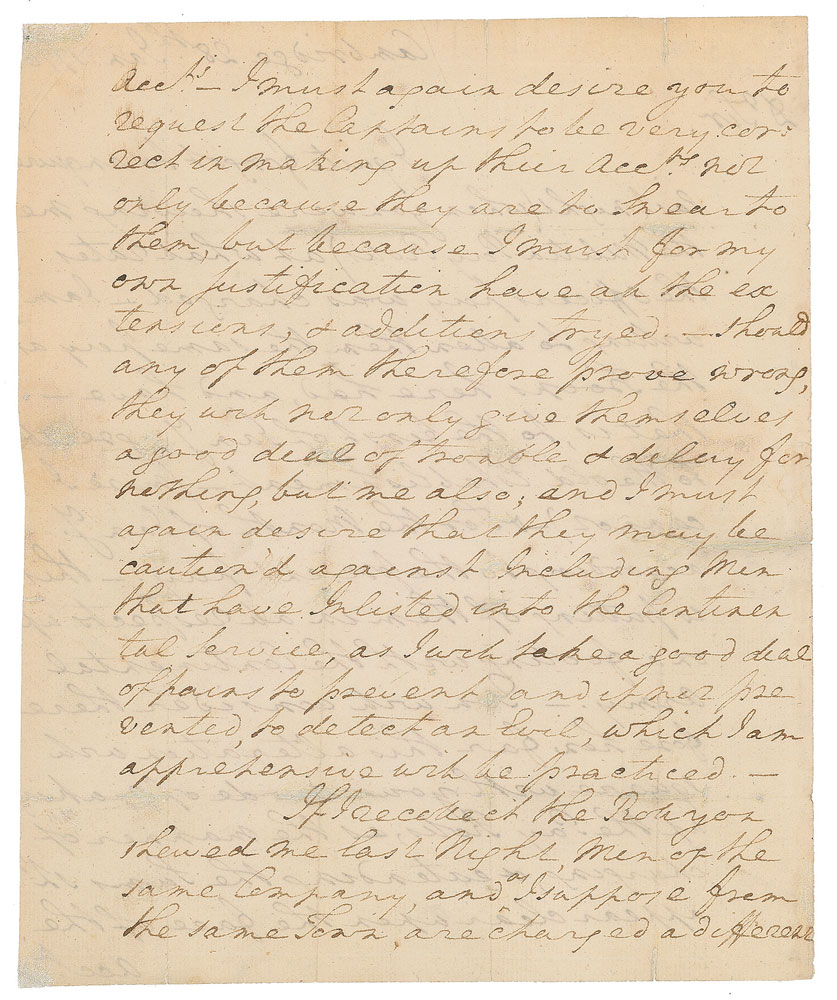 Accts — I must again desire you to
request the Captains to be very cor-
rect in making up their Accts not
only because they are to swear to
them, but because I must for my
own justification have all the ex
tensions, & additions tryed. — should
any of them therefore prove wrong,
they will not only give themselves
a good deal of trouble & delay for
nothing, but me also; and I must
again desire that they may be
caution'd against Including Men
that have Inlisted into the Continen
tal Service, as I will take a good deal
of pains to prevent, and if not pre
vented, to detect an Evil, which I am
apprehensive will be practiced. —
If I recollect the Roll you
shewed me last Night, Men of the
same Company, and as I suppose from
the same Town are charged a different